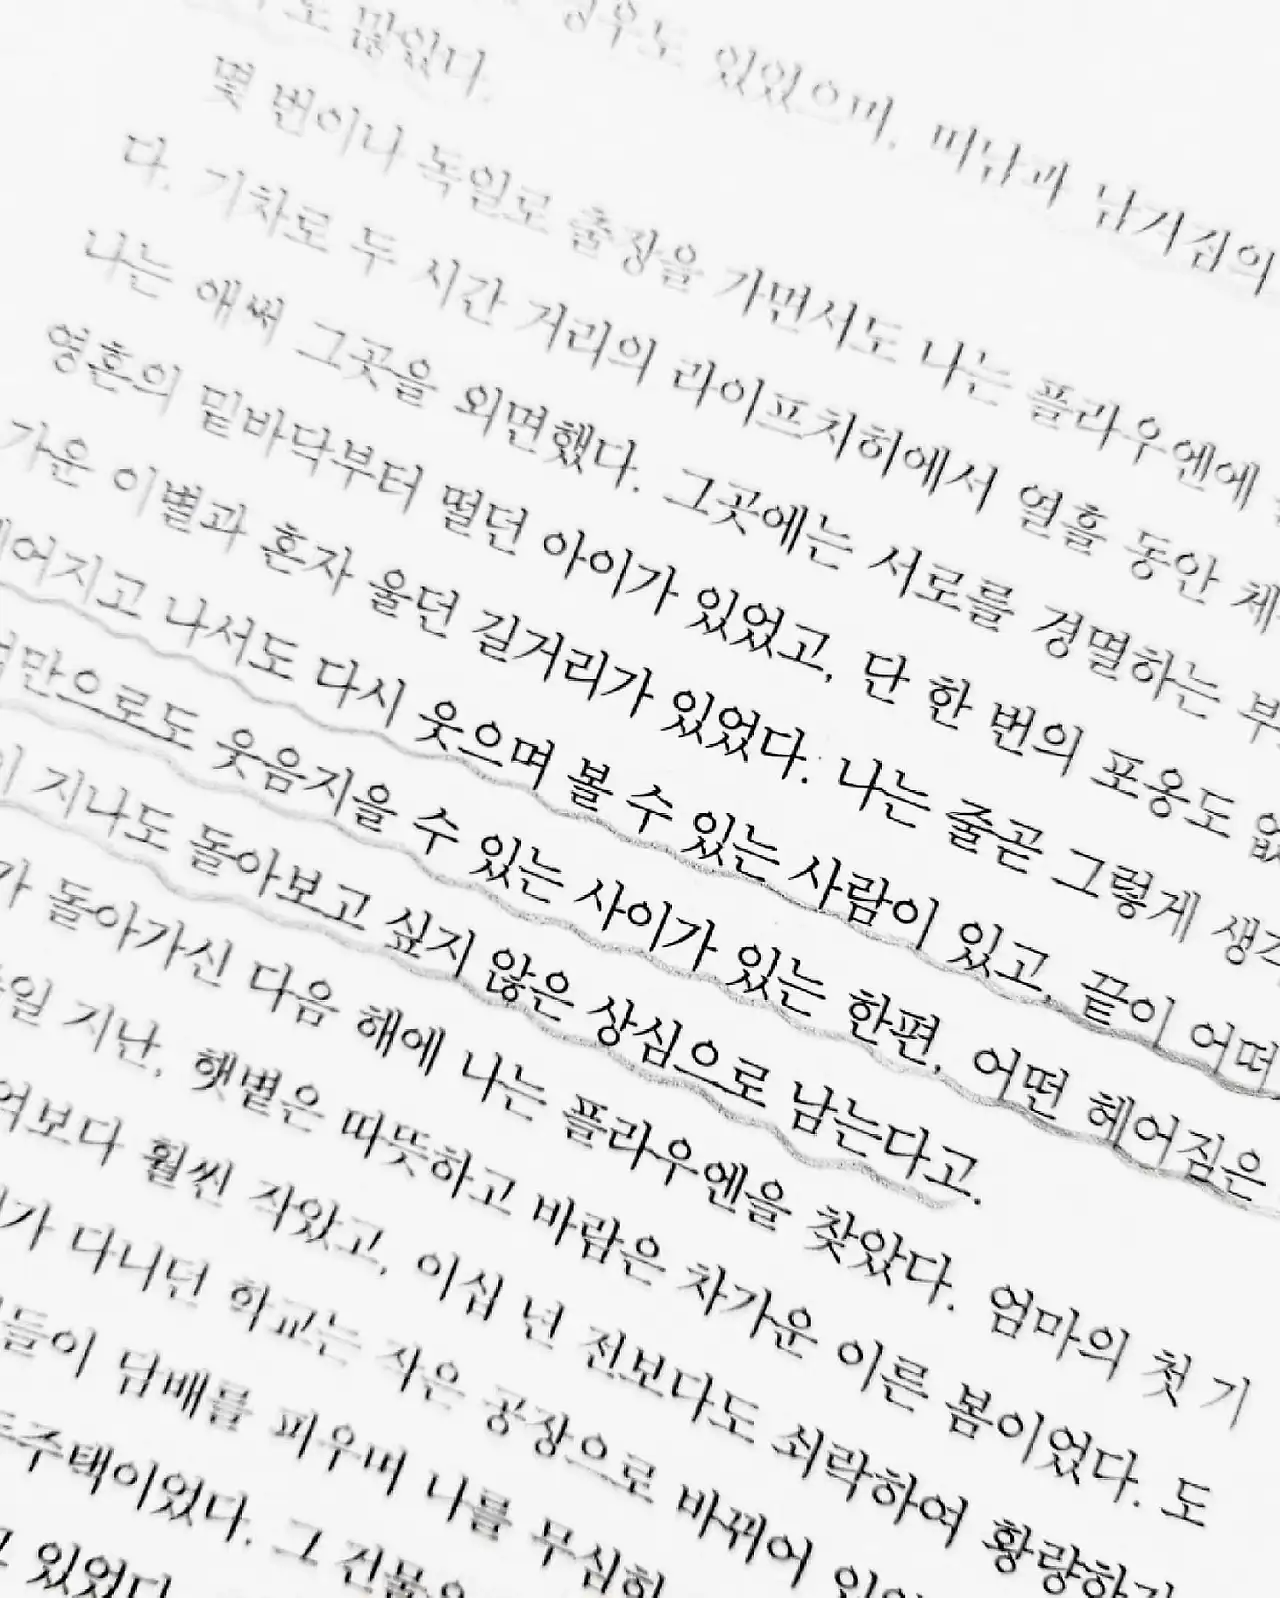 경우도 있었으며, 떠남과 남겨짐의
도 많았다.
몇 번이나 독일로 출장을 가면서도 나는 플라우엔에
다. 기차로 두 시간 거리의 라이프치히에서 열흘 동안 체
나는 애써 그곳을 외면했다. 그곳에는 서로를 경멸하는 부
영혼의 밑바닥부터 떨던 아이가 있었고, 단 한 번의 포옹도 없
가운 이별과 혼자 울던 길거리가 있었다. 나는 줄곧 그렇게 생각
헤어지고 나서도 다시 웃으며 볼 수 있는 사람이 있고, 끝이 어떠
만으로도 웃음지을 수 있는 사이가 있는 한편, 어떤 헤어짐은
이 지나도 돌아보고 싶지 않은 상심으로 남는다고.
가 돌아가신 다음 해에 나는 플라우엔을 찾았다. 엄마의 첫 기
일 지난, 햇볕은 따뜻하고 바람은 차가운 이른 봄이었다. 도
억보다 훨씬 작았고, 이십 년 전보다도 쇠락하여 황량하기
가 다니던 학교는 작은 공장으로 바뀌어 있었
들이 담배를 피우며 나를 무심히
주택이었다. 그 건물은
있었다